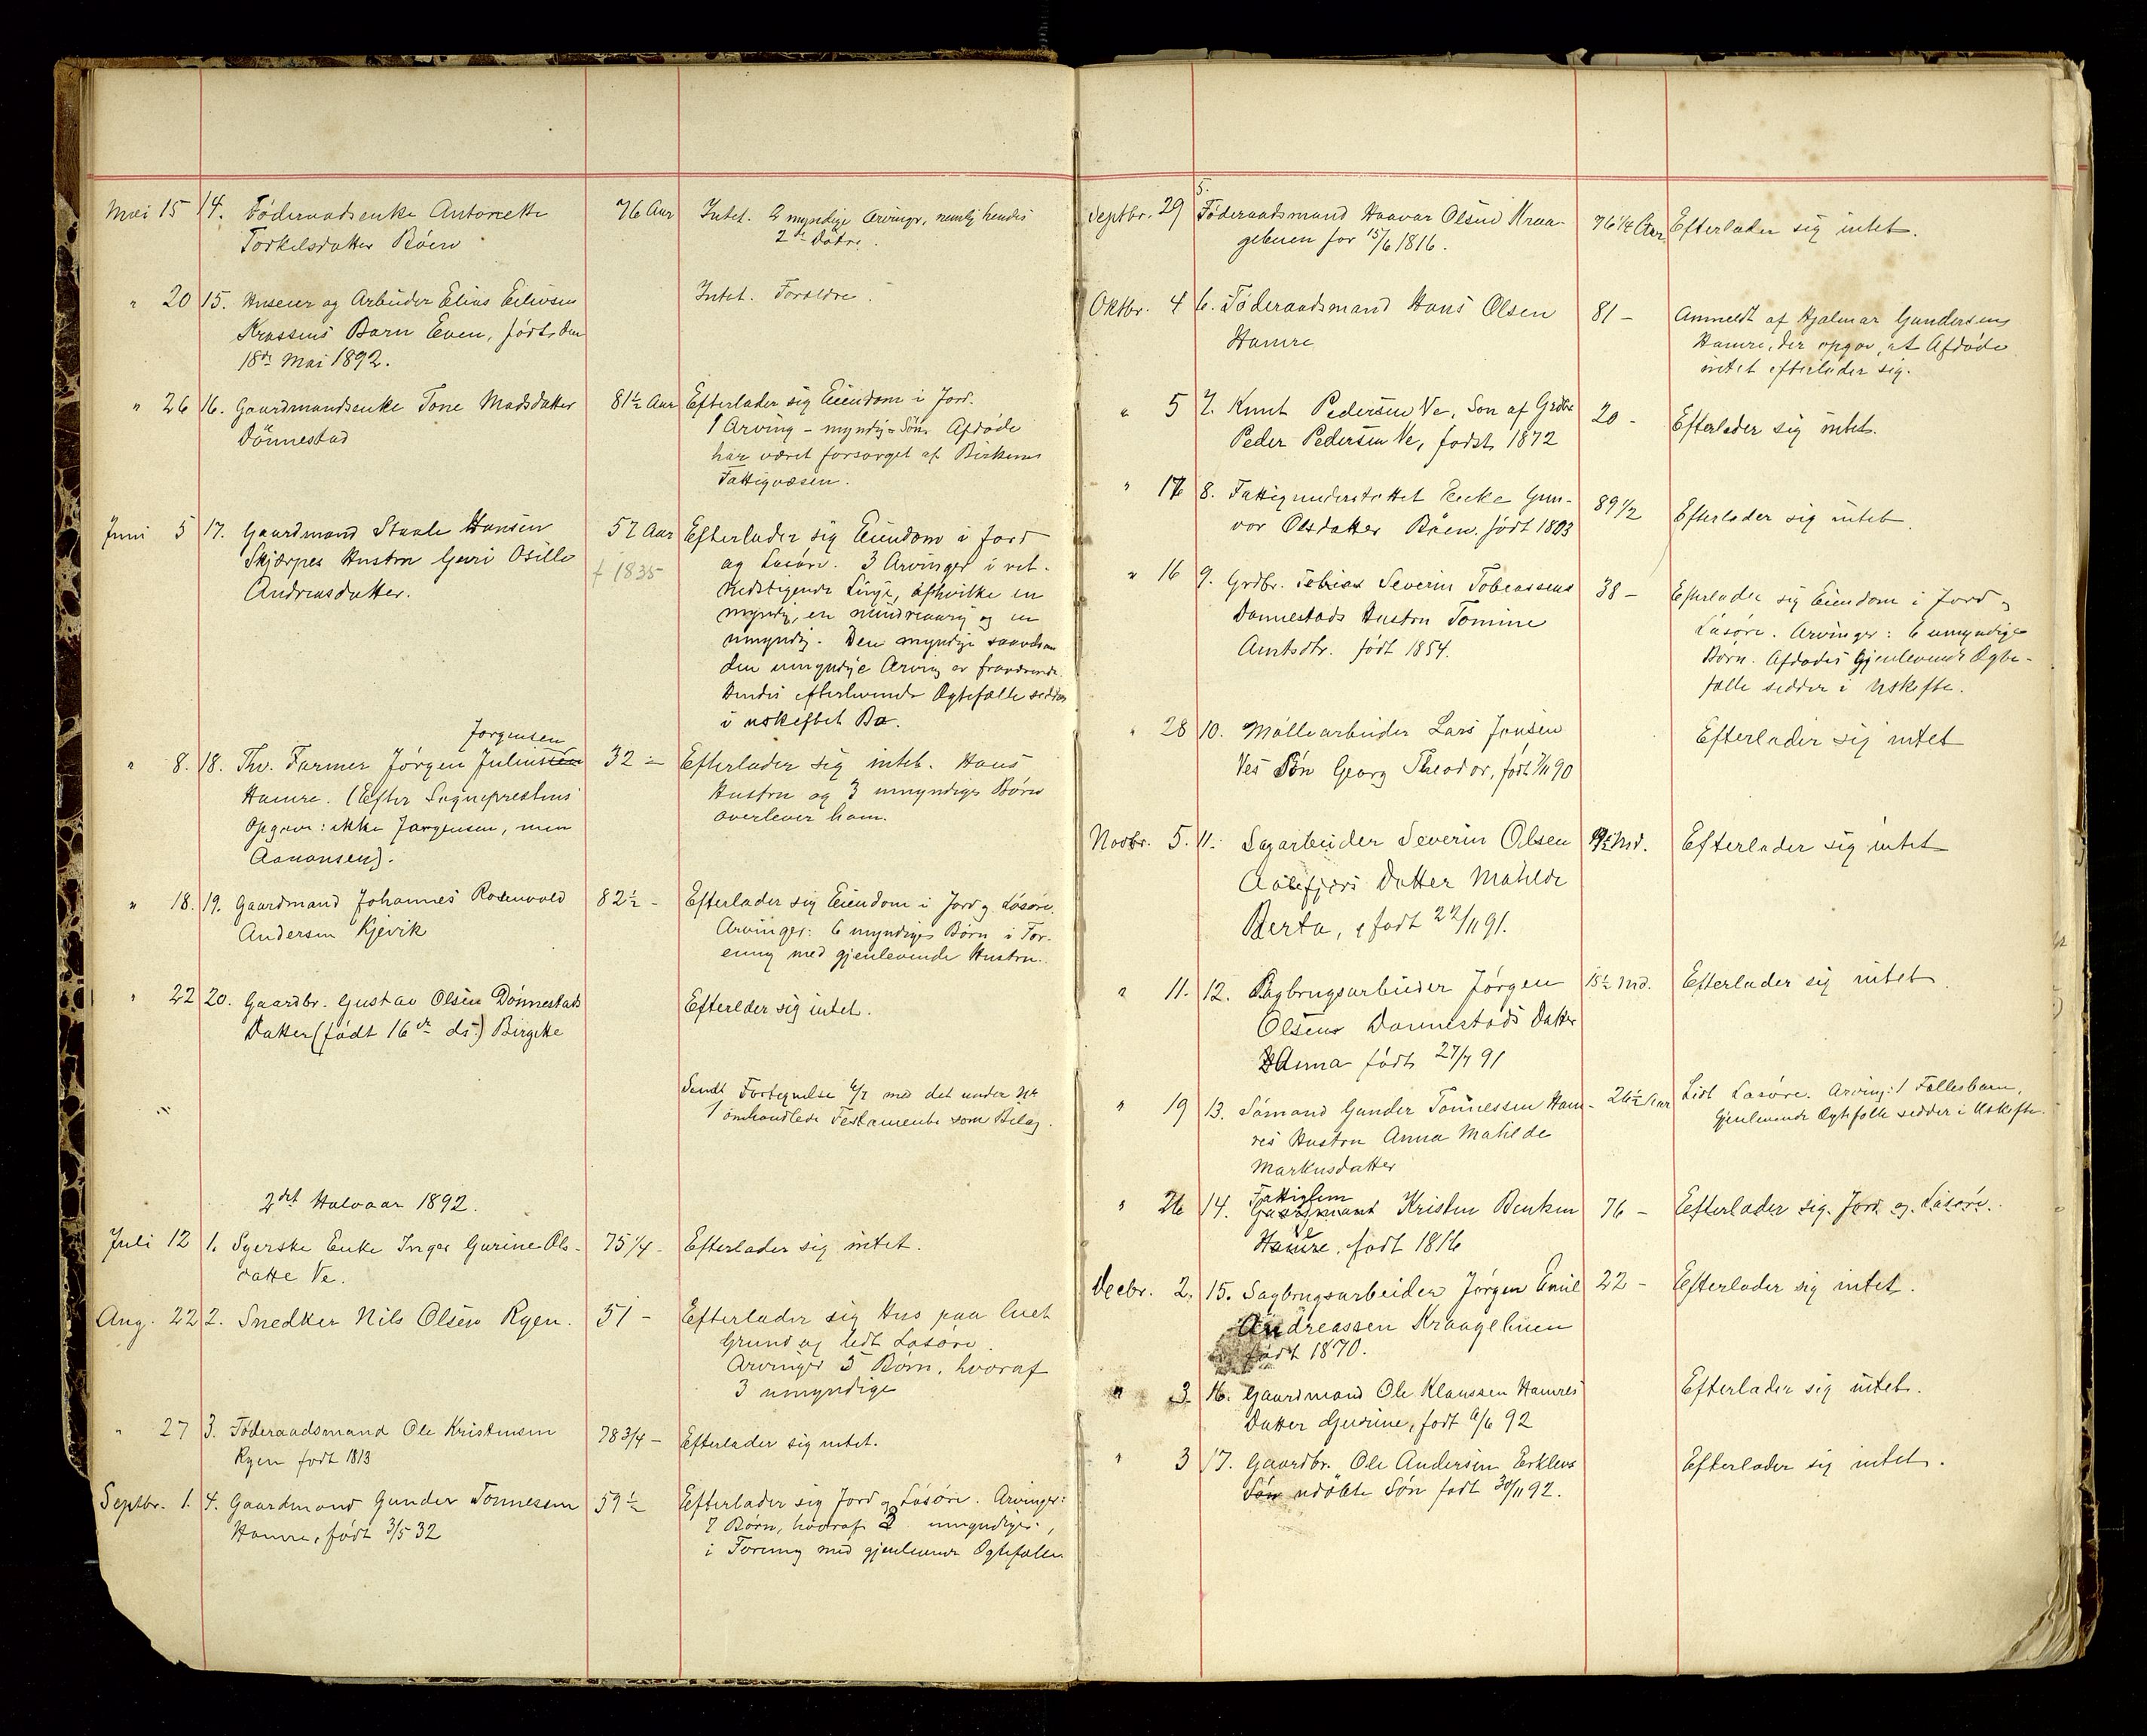 Mai 15 14. Föderaadsenke Antonette 76 Aar Intet. 2 myndige Arvinger, nemlig hendes
Torkelsdatter Böen 2de Døtre.
" 20 15. Huseier og Arbeider Elias Eilivsen Intet. Forældre.
Krossens Barn Even, født den
18de Mai 1892.
" 26 16. Gaardmandsenke Tone Madsdatter 81½ Aar Efterlader sig Eiendom i Jord.
Dönnestad 1 Arving - myndig Søn. Afdøde
har været forsørget af Birkenes
Fattigvæsen.
Juni 5 17. Gaardmand Staale Hansen 57 Aar Efterlader sig Eiendom i Jord
Skjærpes Hustru Guri Osille f 1835 og Løsøre. 3 Arvinger i ret-
Andreasdatter. nedstigende Linje, afhvilke en
myndig, en mindreaarig og en
umyndig. Den myndige saavelsom
den umyndige Arving er fraværende.
Hendes efterlevende Ægtefælle sidder
i uskiftet Bo.
Jørgensen
" 8. 18. Thv. Farmer Jörgen 32 - Efterlader sig intet. Hans
Hamre. (Efter Sogneprestens Hustru og 3 umyndige Børn
Opgave: ikke Jørgensen, men overlever ham.
Aanonsen).
" 18. 19. Gaardmand Johannes Rosenvold 82½ - Efterlader sig Eiendom i Jord og Løsøre.
Andersen Kjevik Arvinger: 6 myndige Børn i For-
ening med gjenlevende Hustru.
" 22 20. Gaardbr. Gustav Olsen Dönnestads Efterlder sig intet.
Datter (født 16de ds.) Birgitte
Sendt Fortegnelse 4/7 med det under No
1 omhandlede Testamente som Bilag.
2det Halvaar 1892.
Juli 12 1. Syerske Enke Inger Gurine Ols- 75¼ - Efterlader sig intet.
datte Ve.
Aug. 22 2. Snedker Nils Olsen Ryen. 51 - Efterlader sig Hus paa leiet
Grund og lidt Løsøre.
Arvinger 5 Børn, hvoraf
3 umyndige
" 27 3. Föderaadsmand Ole Kristensen 78¾ - Efterlader sig intet.
Ryen født 1813
Septbr. 1. 4. Gaardmand Gunder Tönnessen 59½ Efterlader sig Jord og Løsøre. Arvinger:
Hamre, født 3/5 32 7 Børn, hvoraf 2 umyndige,
i Forening med gjenlevende Ægtefælle
Septbr. 29 5. Föderaadsmand Haavar Olsen Kraa- 76¼ Aar Efterlader sig intet.
gebuen før 15/6 1816.
Oktbr. 4 6. Föderaadsmand Hans Olsen 81 - Anmeldt af Hjalmar Gundersen
Hamre Hamre, der opgav, at Afdøde
intet efterlader sig.
" 5 7. Knut Pedersen Ve, Søn af Grdbr 20 - Efterlader sig intet.
Peder Pedersen Ve, født 1872
" 8. Fattigunderstøttet Enke Gun- 89½ Efterlader sig intet.
vor Olsdatter Böen. født 1803
" 16 9. Grdbr. Severin Tobiassens 38 - Efterlader sig Eiendom i Jord og
Dønnestads Hustru Tomine Løsøre. Arvinger: 6 umyndige
Arntsdtr. født 1854. Børn. Afdødes Gjenlevende Ægte-
fælle sidder i Uskifte.
" 28 10. Möllearbeider Lars Jensen Efterlader sig intet
Ves Søn Georg Theodor, født 90
Novbr. 5. 11. Sagarbeider Severin Olsen Md. Efterlader sig intet
Aalefjærs Datter Matilde
Berta, født 22/11 91.
" 11. 12. Sagbrugsarbeider Jørgen 15½ Md. Efterlader sig intet.
Olsens Dønnestads Datter
Anna født 27/7 91
" 19 13. Sømand Gunder Tønnessen Ham- 26½ Aar Lidt Løsøre. Arving: 1 Fællesbarn,
res Hustru Anna Matilde Gjenlevende Ægtefælle sidder i Uskifte.
Markusdatter
Fattiglem
" 26 14. Gaardmand Kristen Bentsen 76 - Efterlader sig. Jord og Løsøre.
Hamre, født 1816
Decbr. 2. 15. Sagbrugsarbeider Jørgen Emil 22 - Efterlader sig intet.
Andreassen Kraagebuen
født 1870.
" 3. 16. Gaardmand Ole Klaussen Hamres Efterlader sig intet.
Datter Gurine, født 6/6 92
" 3 17. Gaardbr. Ole Andersen Erklevs Efterlader sig intet.
Søn udøbte Søn født 30/11 92.